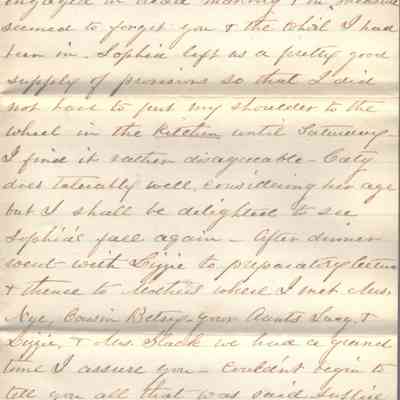 seemed to forget you & the whirl I had
been in. Sophia left us a pretty good
supply of provisions so that I did
not have to put my shoulder to the
wheel in the kitchen until Saturday
I find it rather disagreeable - Caty
does tolerably well, considering her age
but I shall be delighted to see
Sophia's face again - After dinner
went with Lizzie to preparatory lecture
& thence to Mothers where I met Mrs.
Nye, Cousin Betsy, your Aunts Lucy &
Lizzie, & Mrs. Hack we had a grand
time I assure you - couldn't begin to
tell you all that was said Suffice